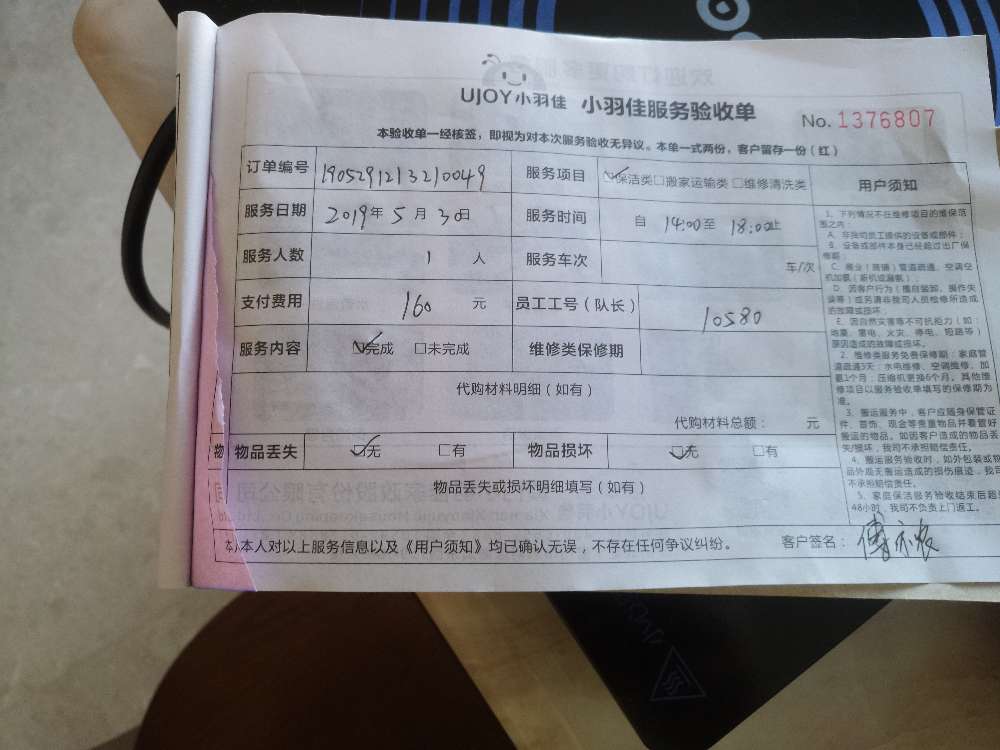 UJOY小羽佳 小羽佳服务验收单
No. 1376807
本验收单一经核签，即视为对本次服务验收无异议。本单一式两份，客户留存一份（红）
订单编号 1905291213210049 服务项目 ☑保洁类□搬家运输类□维修清洗类
服务日期 2019年 5月 30日 服务时间 自 14:00至 18:00止
服务人数 1 人 服务车次 车/次
支付费用 160 元 员工工号（队长） 10580
服务内容 ☑完成 □未完成 维修类保修期
代购材料明细（如有）
代购材料总额： 元
物 物品丢失 ☑无 □有 物品损坏 ☑无 □有
物品丢失或损坏明细填写（如有）
本人对以上服务信息以及《用户须知》均已确认无误，不存在任何争议纠纷。 客户签名：
用户须知
1、下列情况不在维修项目的维保范
围之内：
A、非我司员工提供的设备或部件；
B、设备或部件本身已经超过出厂保
修期；
C、商业（店铺）管道疏通、空调空
机加氨（新机或漏氨）；
D、因客户行为（擅自装卸、操作失
误等）或另请非我司人员检修所造成
的故障或损坏；
E、因自然灾害等不可抗拒力（如：
地震、雷电、火灾、停电、短路等）
原因造成的故障或损坏。
2、维修类服务免费保修期：家庭管
道疏通3天；水电维修、空调维修、加
氨1个月；压缩机更换6个月。其他维
修项目以服务验收单填写的保修期为
准。
3、搬运服务中，客户应随身保管证
件、首饰、现金等贵重物品并看管好
搬运的物品。如因客户造成的物品丢
失/损坏，我司不承担赔偿责任。
4、搬运服务验收时，如外包装或物
品外观无搬运造成的损伤痕迹，我司
不承担赔偿责任。
5、家庭保洁服务验收结束后超
48小时，我司不负责上门返工。